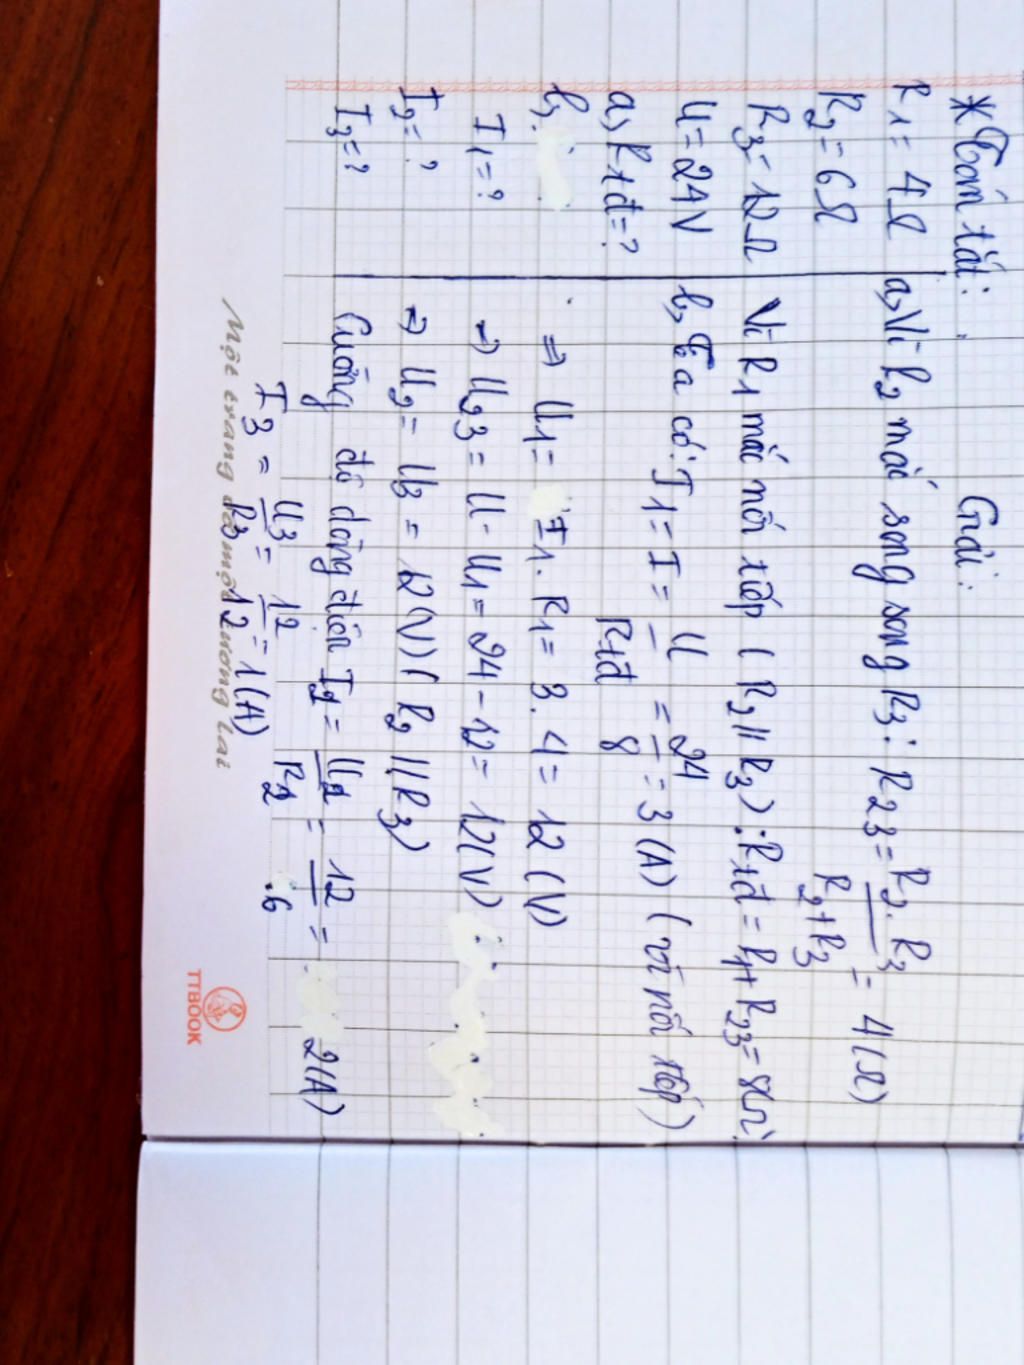 * Tóm tắt:
R1 = 4Ω
R2 = 6Ω
R3 = 12Ω
U = 24V
a, Rtđ = ?
b,
I1 = ?
I2 = ?
I3 = ?
Giải:
a, Vì R2 mắc song song R3: R23 = R2.R3 / R2+R3 = 4(Ω)
Vì R1 mắc nối tiếp (R2 // R3): Rtđ = R1 + R23 = 8(Ω)
b, Ta có: I1 = I = U/Rtđ = 24/8 = 3(A) (vì nối tiếp)
⇒ U1 = I1.R1 = 3.4 = 12(V)
⇒ U23 = U - U1 = 24 - 12 = 12(V)
⇒ U2 = U3 = 12(V) (R2 // R3)
Cường độ dòng điện I2 = U2/R2 = 12/6 = 2(A)
I3 = U3/R3 = 12/12 = 1(A)
Một trang vở một tương lai
TTBOOK